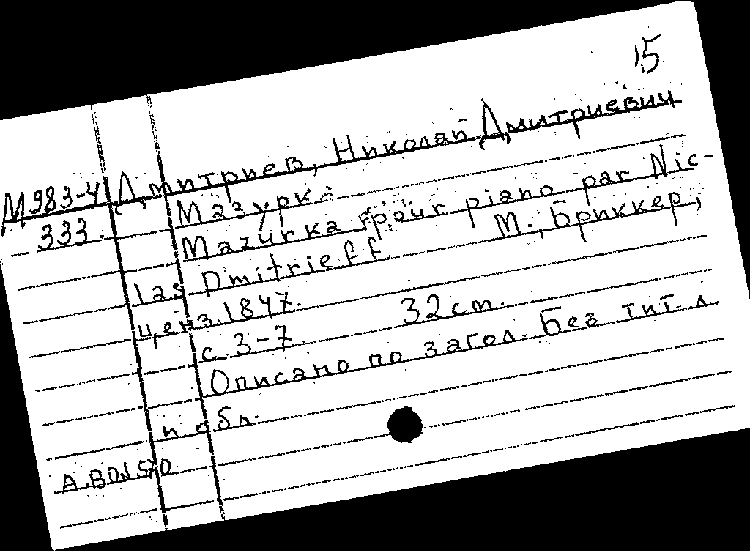 15
М983-4 Дмитриев, Николай Дмитриевич
333. Мазурка
Mazurka pour piano par Nic-
las Dmitrieff М., Бриккер,
ценз. 1847.
с 3-7 32 cm.
Описано по загол. Без тит. л.
и обл.